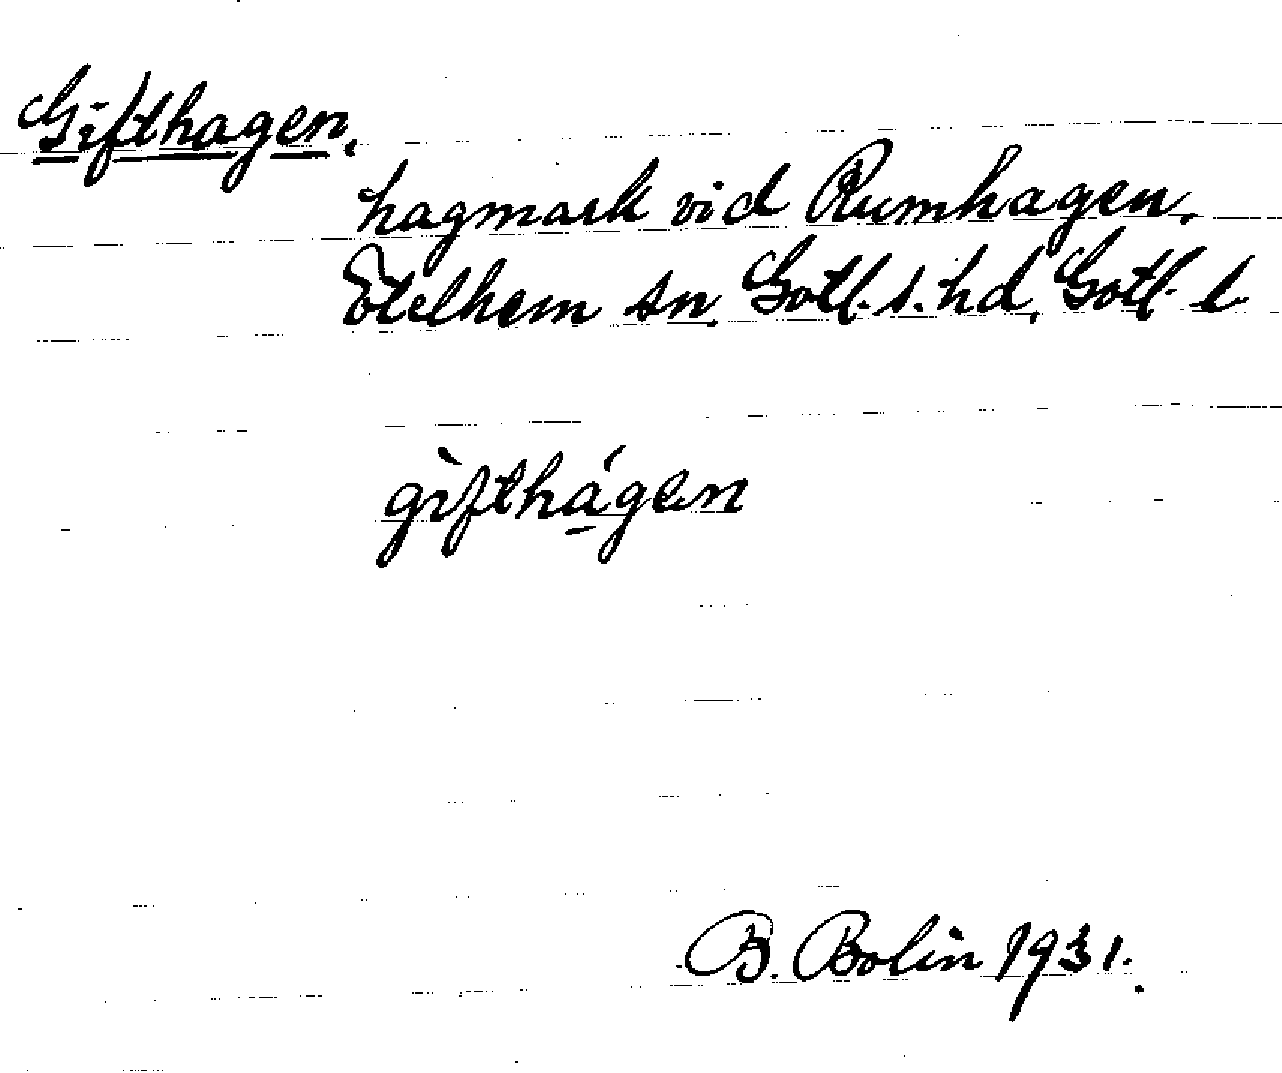 Gifthagen.
hagmark vid Rumhagen.
Etelhem sn. Gotl. s. hd, Gotl. l
gìfthá̱gen
B. Bolin 1931.